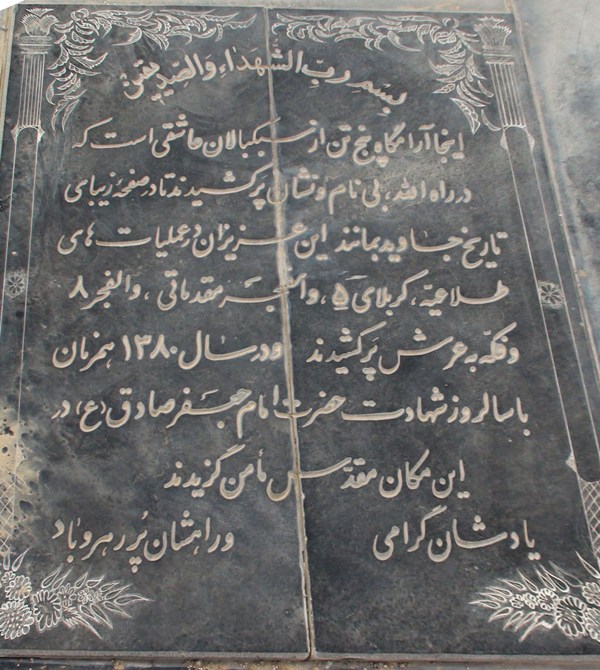 بسم رب الشهداء والصدیقین
اینجا آرامگاه پنج تن از سبکبالان عاشقی است که
در راه الله، بی نام و نشان پر کشیدند تا در صفحه زیبای
تاریخ جاوید بمانند این عزیزان در عملیات های
طلاعیه، کربلای ۵، والفجر مقدماتی، والفجر ۸
و فکه به عرش پر کشیدند و در سال ۱۳۸۰ همزمان
با سالروز شهادت حضرت امام جعفر صادق (ع) در
این مکان مقدس مأمن گزیدند
یادشان گرامی و راهشان پر رهرو باد